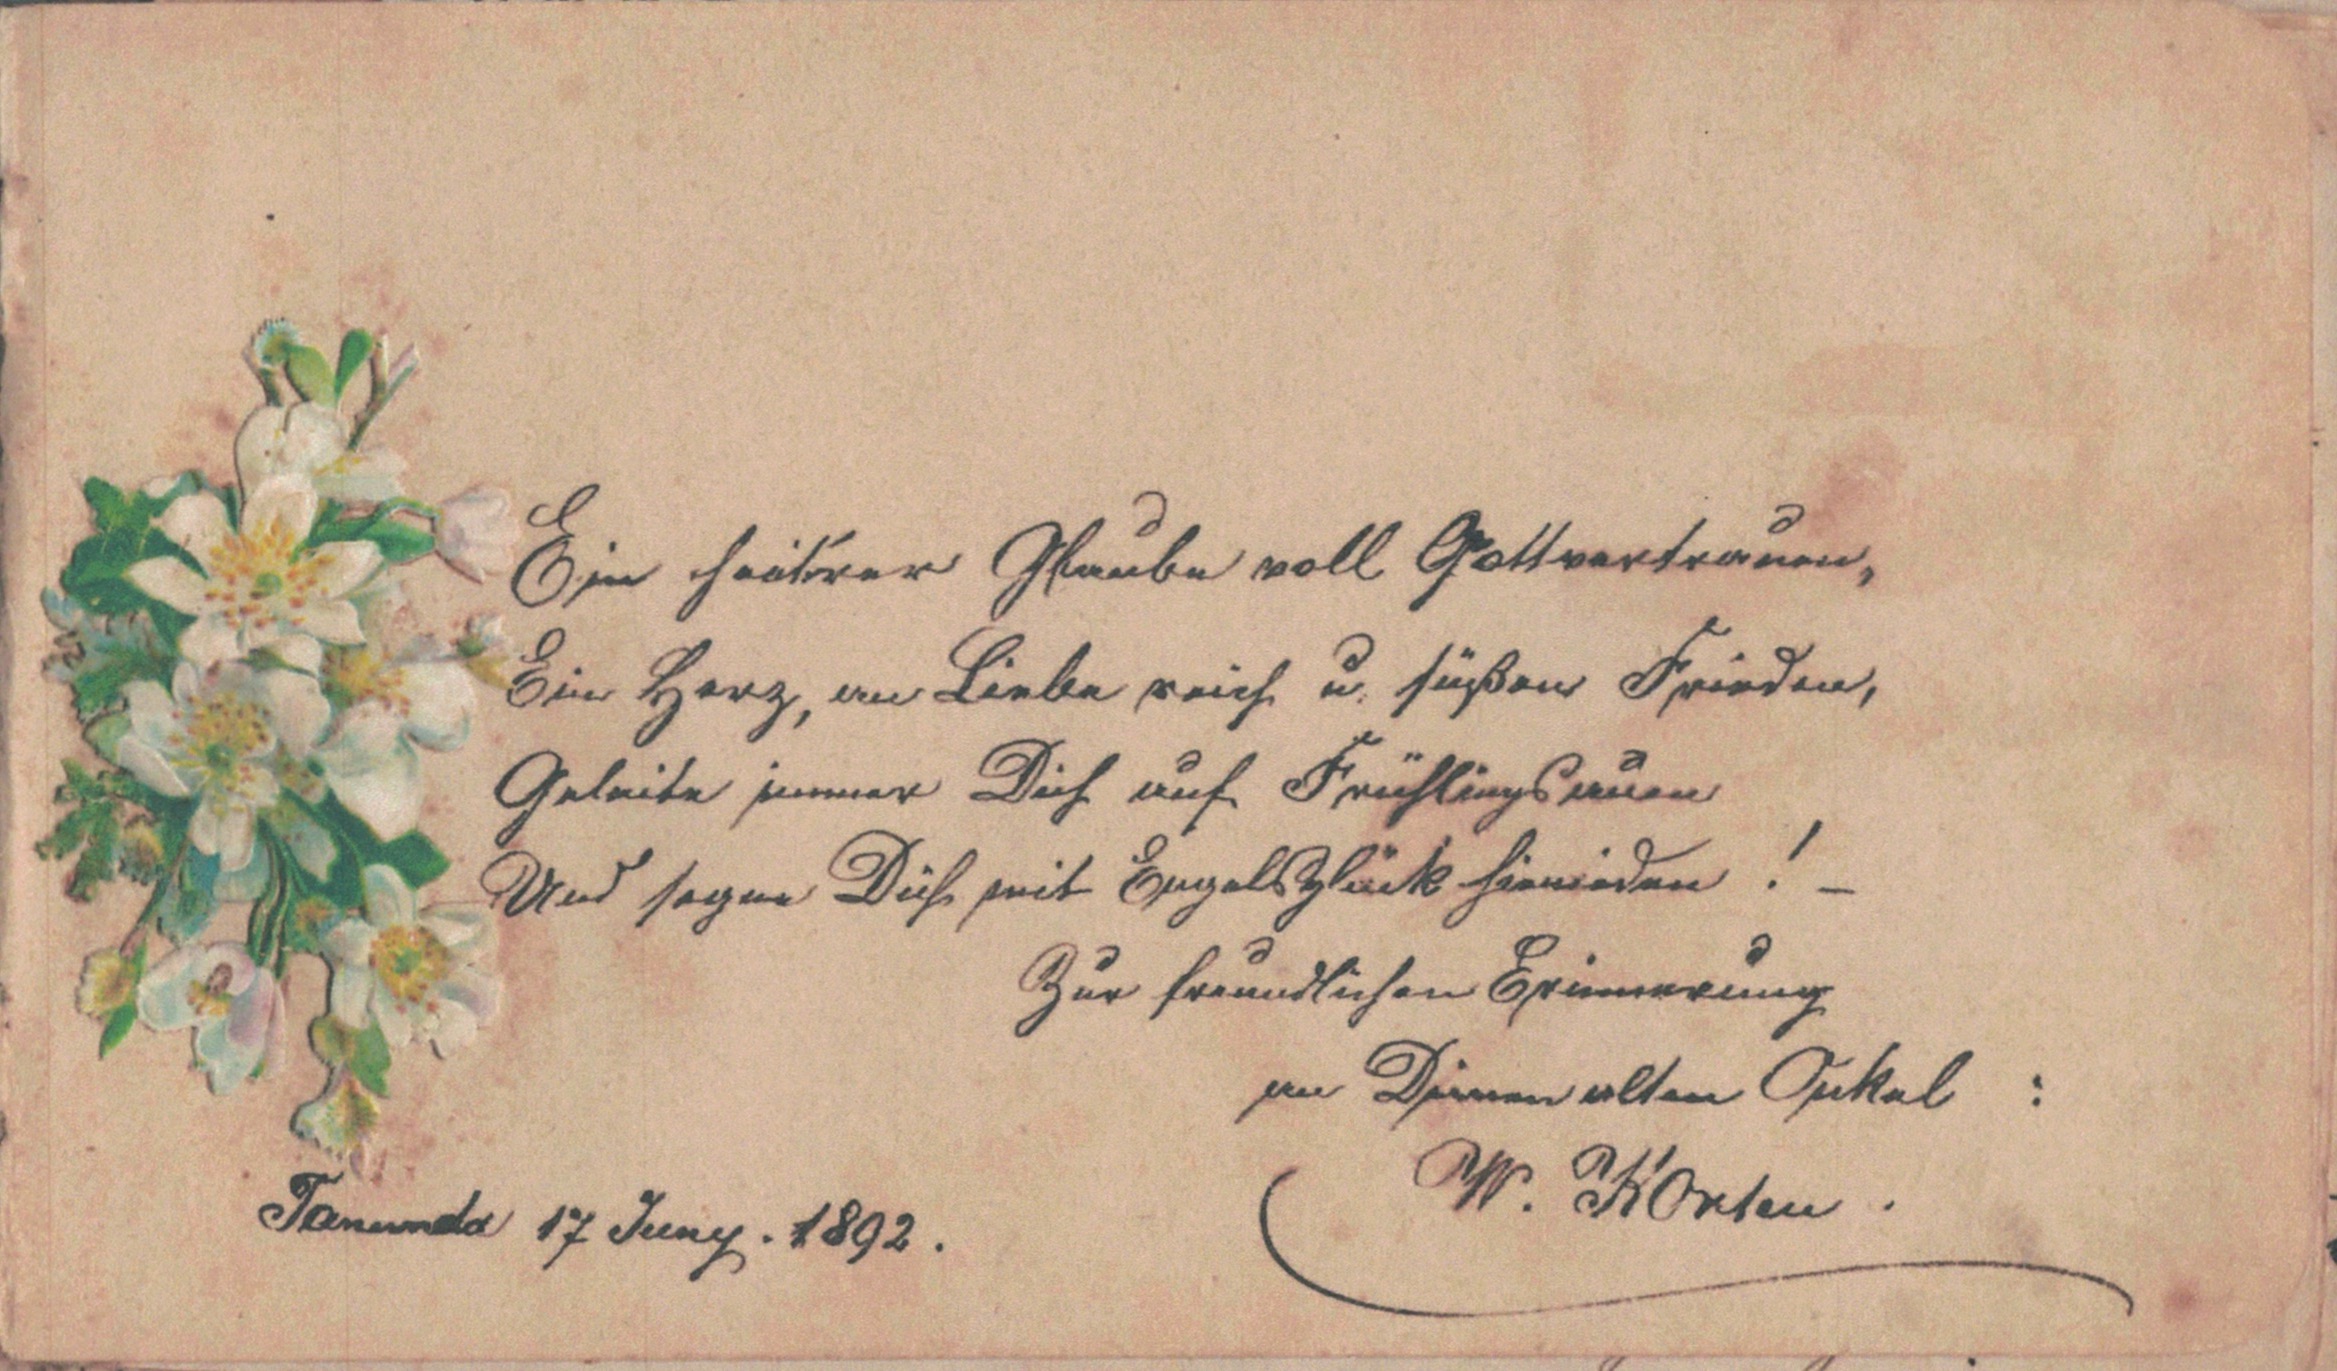 Ein heit'rer Glaube voll Gottvertrauen,
Ein Herz, an Liebe reich u. süßem Frieden,
Geleite immer Dich auf Frühlingsauen
Und segne Dich mit Engelsglück hienieden ! —
Zur freundlichen Erinnerung
an Deinen alten Onkel :
W. Korten .
Tanunda 17 Juny . 1892 .